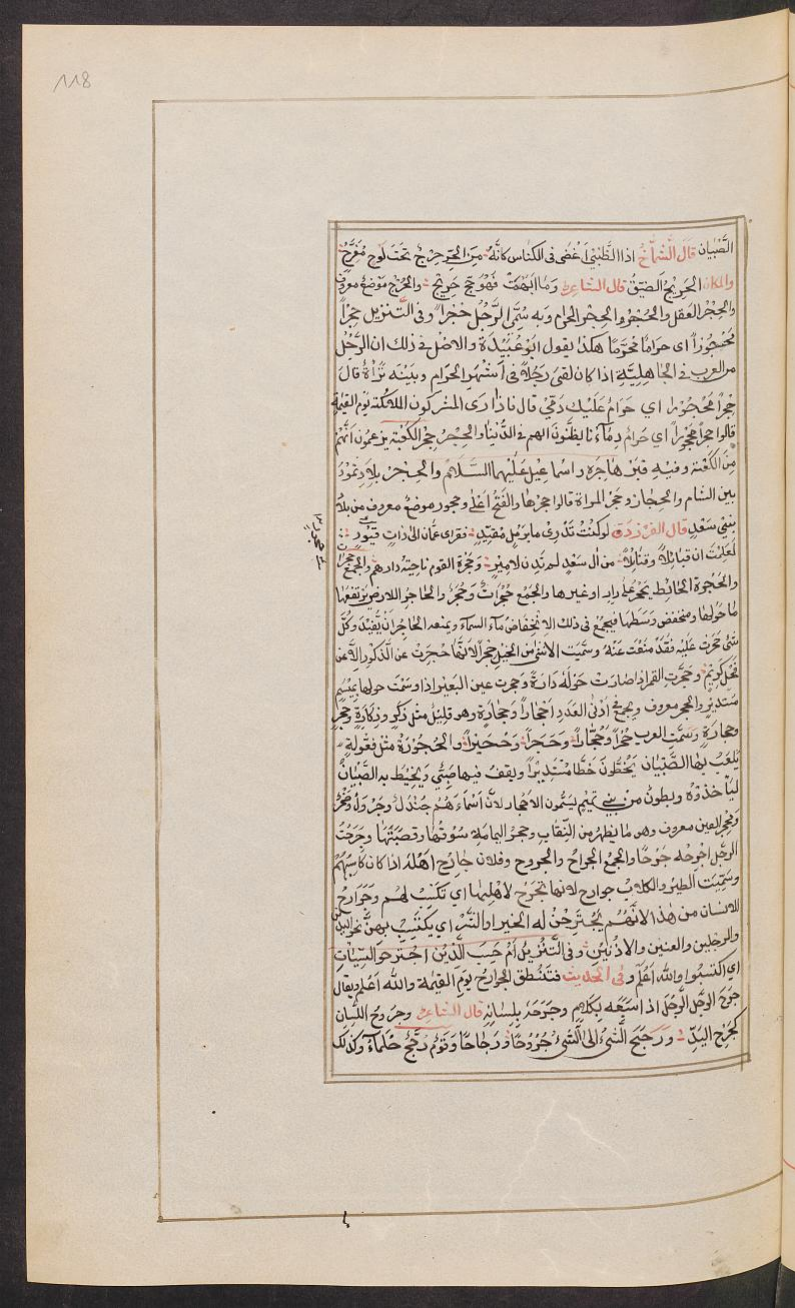 118
الصّبيان قَالَ الشماخ اذا الظبي اغضى فى الكناس كانّهُ من الحَرّ حِرجٌ تحت لَوح مُفَرَّجُ
والمكان الحَرِيجُ الضيّقُ قال الشاعر وما ابهمت فَهُو حَجٌ حَرِيجٌ والحُرج موضع معروف
والحِجْرُ العقل والحَجْرُ والحِجْر الحرام وبه سُمّى الرّجُل حُجْراً وفى التّنزيل حِجْراً
مَحْجُوراً اى حراماً مُحَرَّماً هكذا يقول ابو عُبَيْدَة والاصل فى ذلك ان الرّجُل
من العرب فى الجاهِليّةِ اذا كان لقى رَجُلاً فى اَشهُر الحرام وبينه تَرَأةٌ قال
حِجْراً مَحْجُورا اي حَوَامُ عَلَيك دَمِيْ قال فاذا رَى المشركون الملائكة يَوم القيمة
قالوا حِجراً مَحْجُوراً اي حَرامٌ دِمَآءنا يظُنّونَ انهم فى الدُّنيا والحِجْرُ حِجْر الكعْبَة يزعمون انّهُ
مِنَ الكَعْبَة وفيهِ قَبْرُ هَاجِرَه واسماعِيل عَليهما السَّلامُ والحِجْر بلاد ثمُودَ
بين الشام والحِجاز وحَجْر المراة قالوا حِجْرها والفَتْحُ اعْلٰى ومحجور موضع معروف من بلاد
بَنِى سَعْدٍ قال الفرزدق لَوكنتَ تَدْرِى ما بِرَمْلٍ مُقَيّدٍ فقرى عمّان الىٰ ذات
لَعَلِمْتَ ان قبائِلاً وقبائِلاً من اٰل سَعْدٍ لَم تَدِن لامِيْرِ وحَجْرَة القوم ناحِيَةُ دارهم والجمع
والحُجْرة الحائِط يُحَجّر على دار او غيرها والجَمْع حُجُراتٌ وحُجَرٌ والحاجر الارض يَرتفِعُ
ما حولها ومنخفض وَسَطها فيجمع فى ذلك الانخِفاض مَاء السمآء ويمنعه الحاجر ان يفيض وكُلّ
شئ حَجَرت عَليهِ فقَدْ مَنَعتَ عَنْهُ وسُمّيَت الانثى من الخيل حِجْراً لانّها حُجِرتْ عن الذّكور الّا عن
فَحْل كريمٍ وحَجّرَت القمر اذا صَارَت حَولَه دَارَةٌ وحَجرت عين البَعير اذا وسَمْت حولها بِميْسَمٍ
مستدير والحجر معروف ويجمع اَدْنىٰ العَدَدِ اَحْجاراً وحِجارَة وهو قليل مثل ذَكَرٍ وذِكَارَةٍ وحَجَرٍ
وحِجارَةٍ وسَمّتِ العرب حُجْراً وحَجّاراً وحَجَراً وحُجَيراً والحَجُّورَة مثل فَعُّولَةٍ
يَلعَبُ بِها الصِّبْيَانَ يَخُطّونَ خَطّاً مُستَديْراً ويقِفُ فيها صَبِىٌّ ويُحِيْطُ به الصّبْيَانُ
لِيَاخُذُوهُ وبطونٌ من بنِى تميْم يُسَمُّون الاحْجار لانَّ اسمآءهُم جَنْدَل وجَرْوَل وصَخْر
ومَحْجر العين معروف وهو مَا يظهر من النِقاب وحجر اليمامَة سُوقُها وقصبَتُها وجَرَحْتُ
الرجل اجرحه جَرحًا والجمع الجراح والجروح وفلان جارحُ اَهْلهُ اذا كان كاسِبَهُم
وسُمّيت الطّير والكلابُ جوارح لانها تَجْرحُ لاهْلها اي تَكسِبُ لهم وجَوَارحُ
للانسان من هذا لانّهُم يَجْتَرِحْنَ له الخير او الشّر اي يَكْتَسِب بهِنَّ نحو اليدين
والرجلين والعينين والاذنين وفى التّنزيل ام حَسِبَ الّذين اجترحوا السيئات
اي اكتسَبُوا والله اعْلم وفى الحديث فتنطق الجوارحُ يوم القيمة والله اعلم ويقال
جَرَحَ الرجُل الرّجُل اذا سَبَّعه بكلام وجَرَحَهُ بِلِسَانِهِ قال الشاعر وجروح اللّسَان
كجَرْح اليَدِّ ورجح الشئ الى الشئ رُجُوحًا ورَجَاحًا وقوم رُجّحٌ حُلَمآء وكذلك